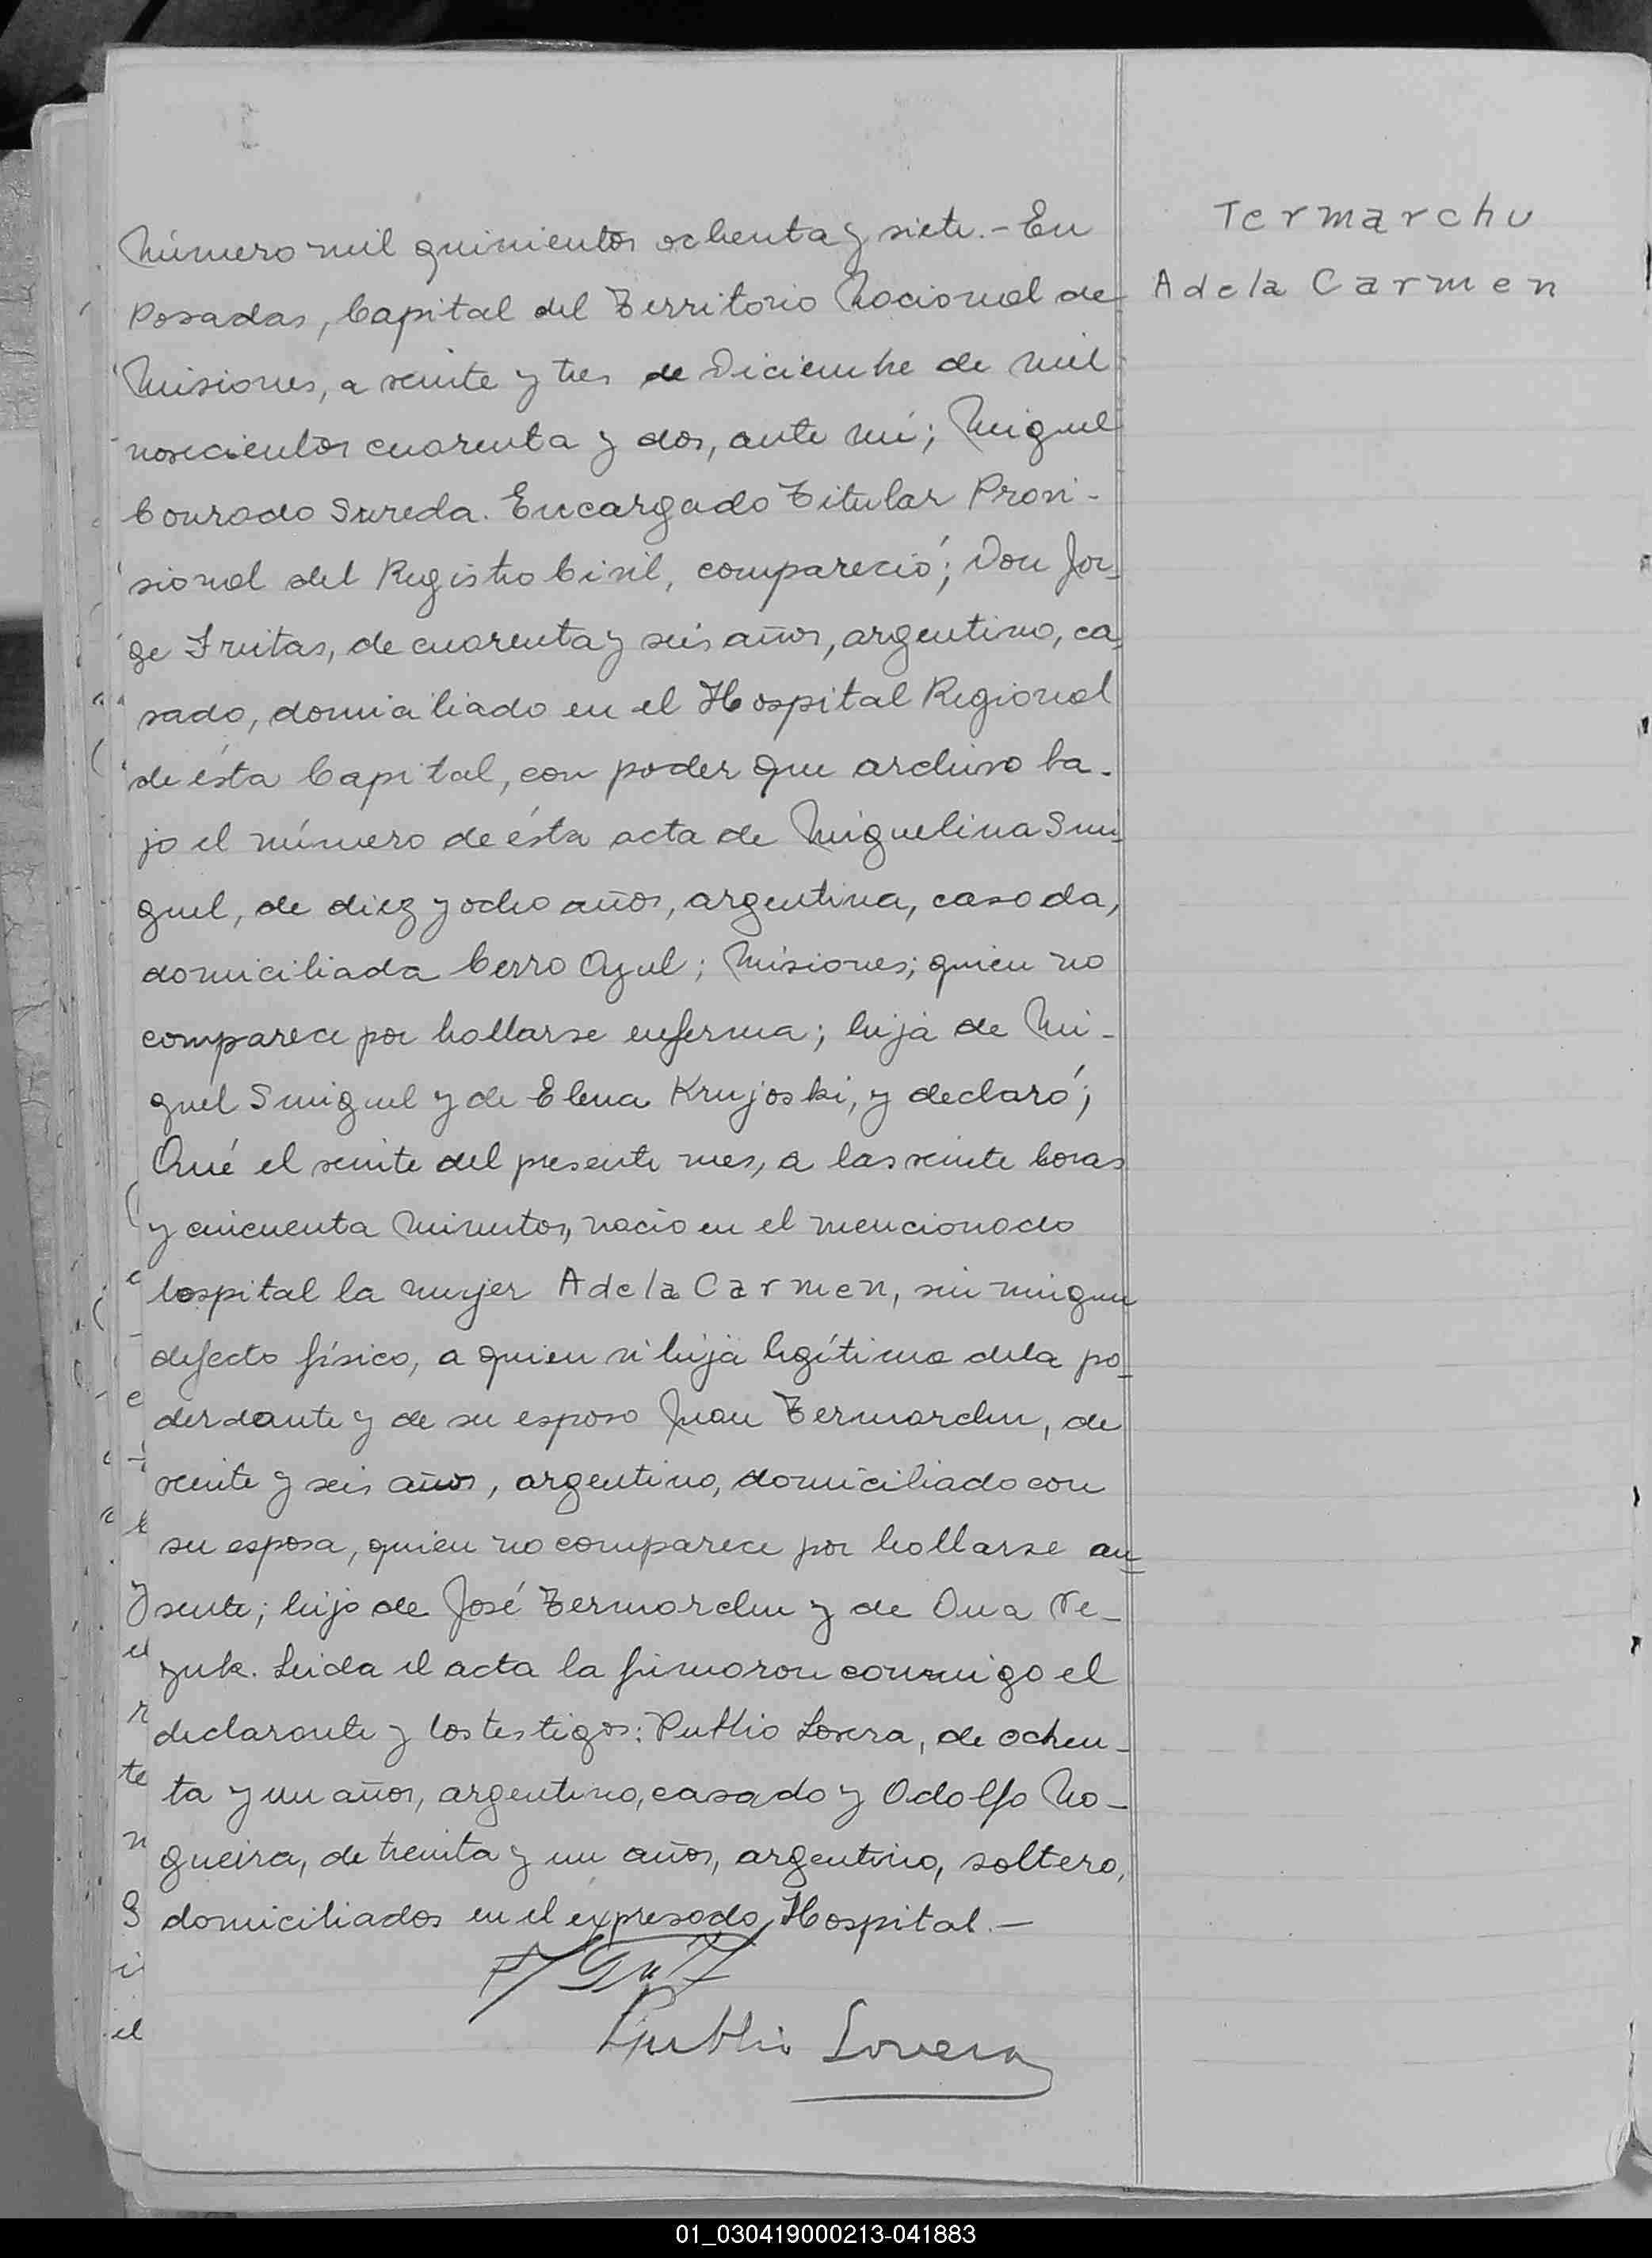 Termarchu
Adela Carmen
Número mil quinientos ochenta y siete.- En
Posadas, Capital del Territorio Nacional de
Misiones, a veinte y tres de Diciembre de mil
novecientos cuarenta y dos, ante mí; Miguel
Conrado Sureda. Encargado Titular Provi-
sional del Registro Civil, compareció; Don Jor-
ge Frutas, de cuarenta y seis años, argentino, ca-
sado, domiciliado en el Hospital Regional
de ésta Capital, con poder que archivo ba-
jo el número de ésta acta de Miguelina Smi-
guel, de diez y ocho años, argentina, casada,
domiciliada Cerro Azul; Misiones; quien no
comparece por hallarse enferma; hija de Mi-
guel Smiguel y de Elena Krujoski, y declaró;
Qué el veinte del presente mes, a las veinte horas
y cincuenta minutos, nacio en el mencionado
hospital la mujer Adela Carmen, sin ningun
defecto físico, a quien vi hija legítima dela po-
derdante y de su esposo Juan Termarchu, de
veinte y seis años, argentino, domiciliado con
su esposa, quien no comparece por hallarse au-
sente; hijo de José Termarchu y de Ana Ve-
zuk. Leida el acta la firmaron conmigo el
declarante y los testigos: Publio Lovera, de ochen-
ta y un años, argentino, casado y Adolfo No-
gueira, de treinta y un años, argentino, soltero,
domiciliados en el expresado Hospital.-
Publio Lovera
01_030419000213-041883